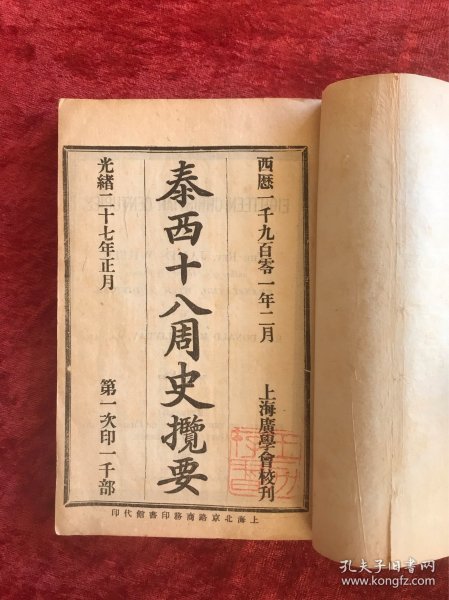 西曆一千九百零一年二月
上海廣學會校刊
泰西十八周史攬要
光緒二十七年正月
第一次印一千部
上海北京路商務印書館代印
孔夫子旧书网
www.kongfz.com